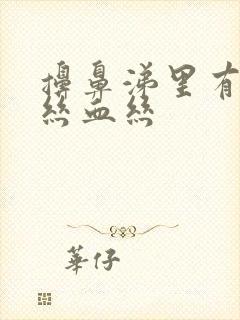 擤鼻涕里有
絲血絲
華仔